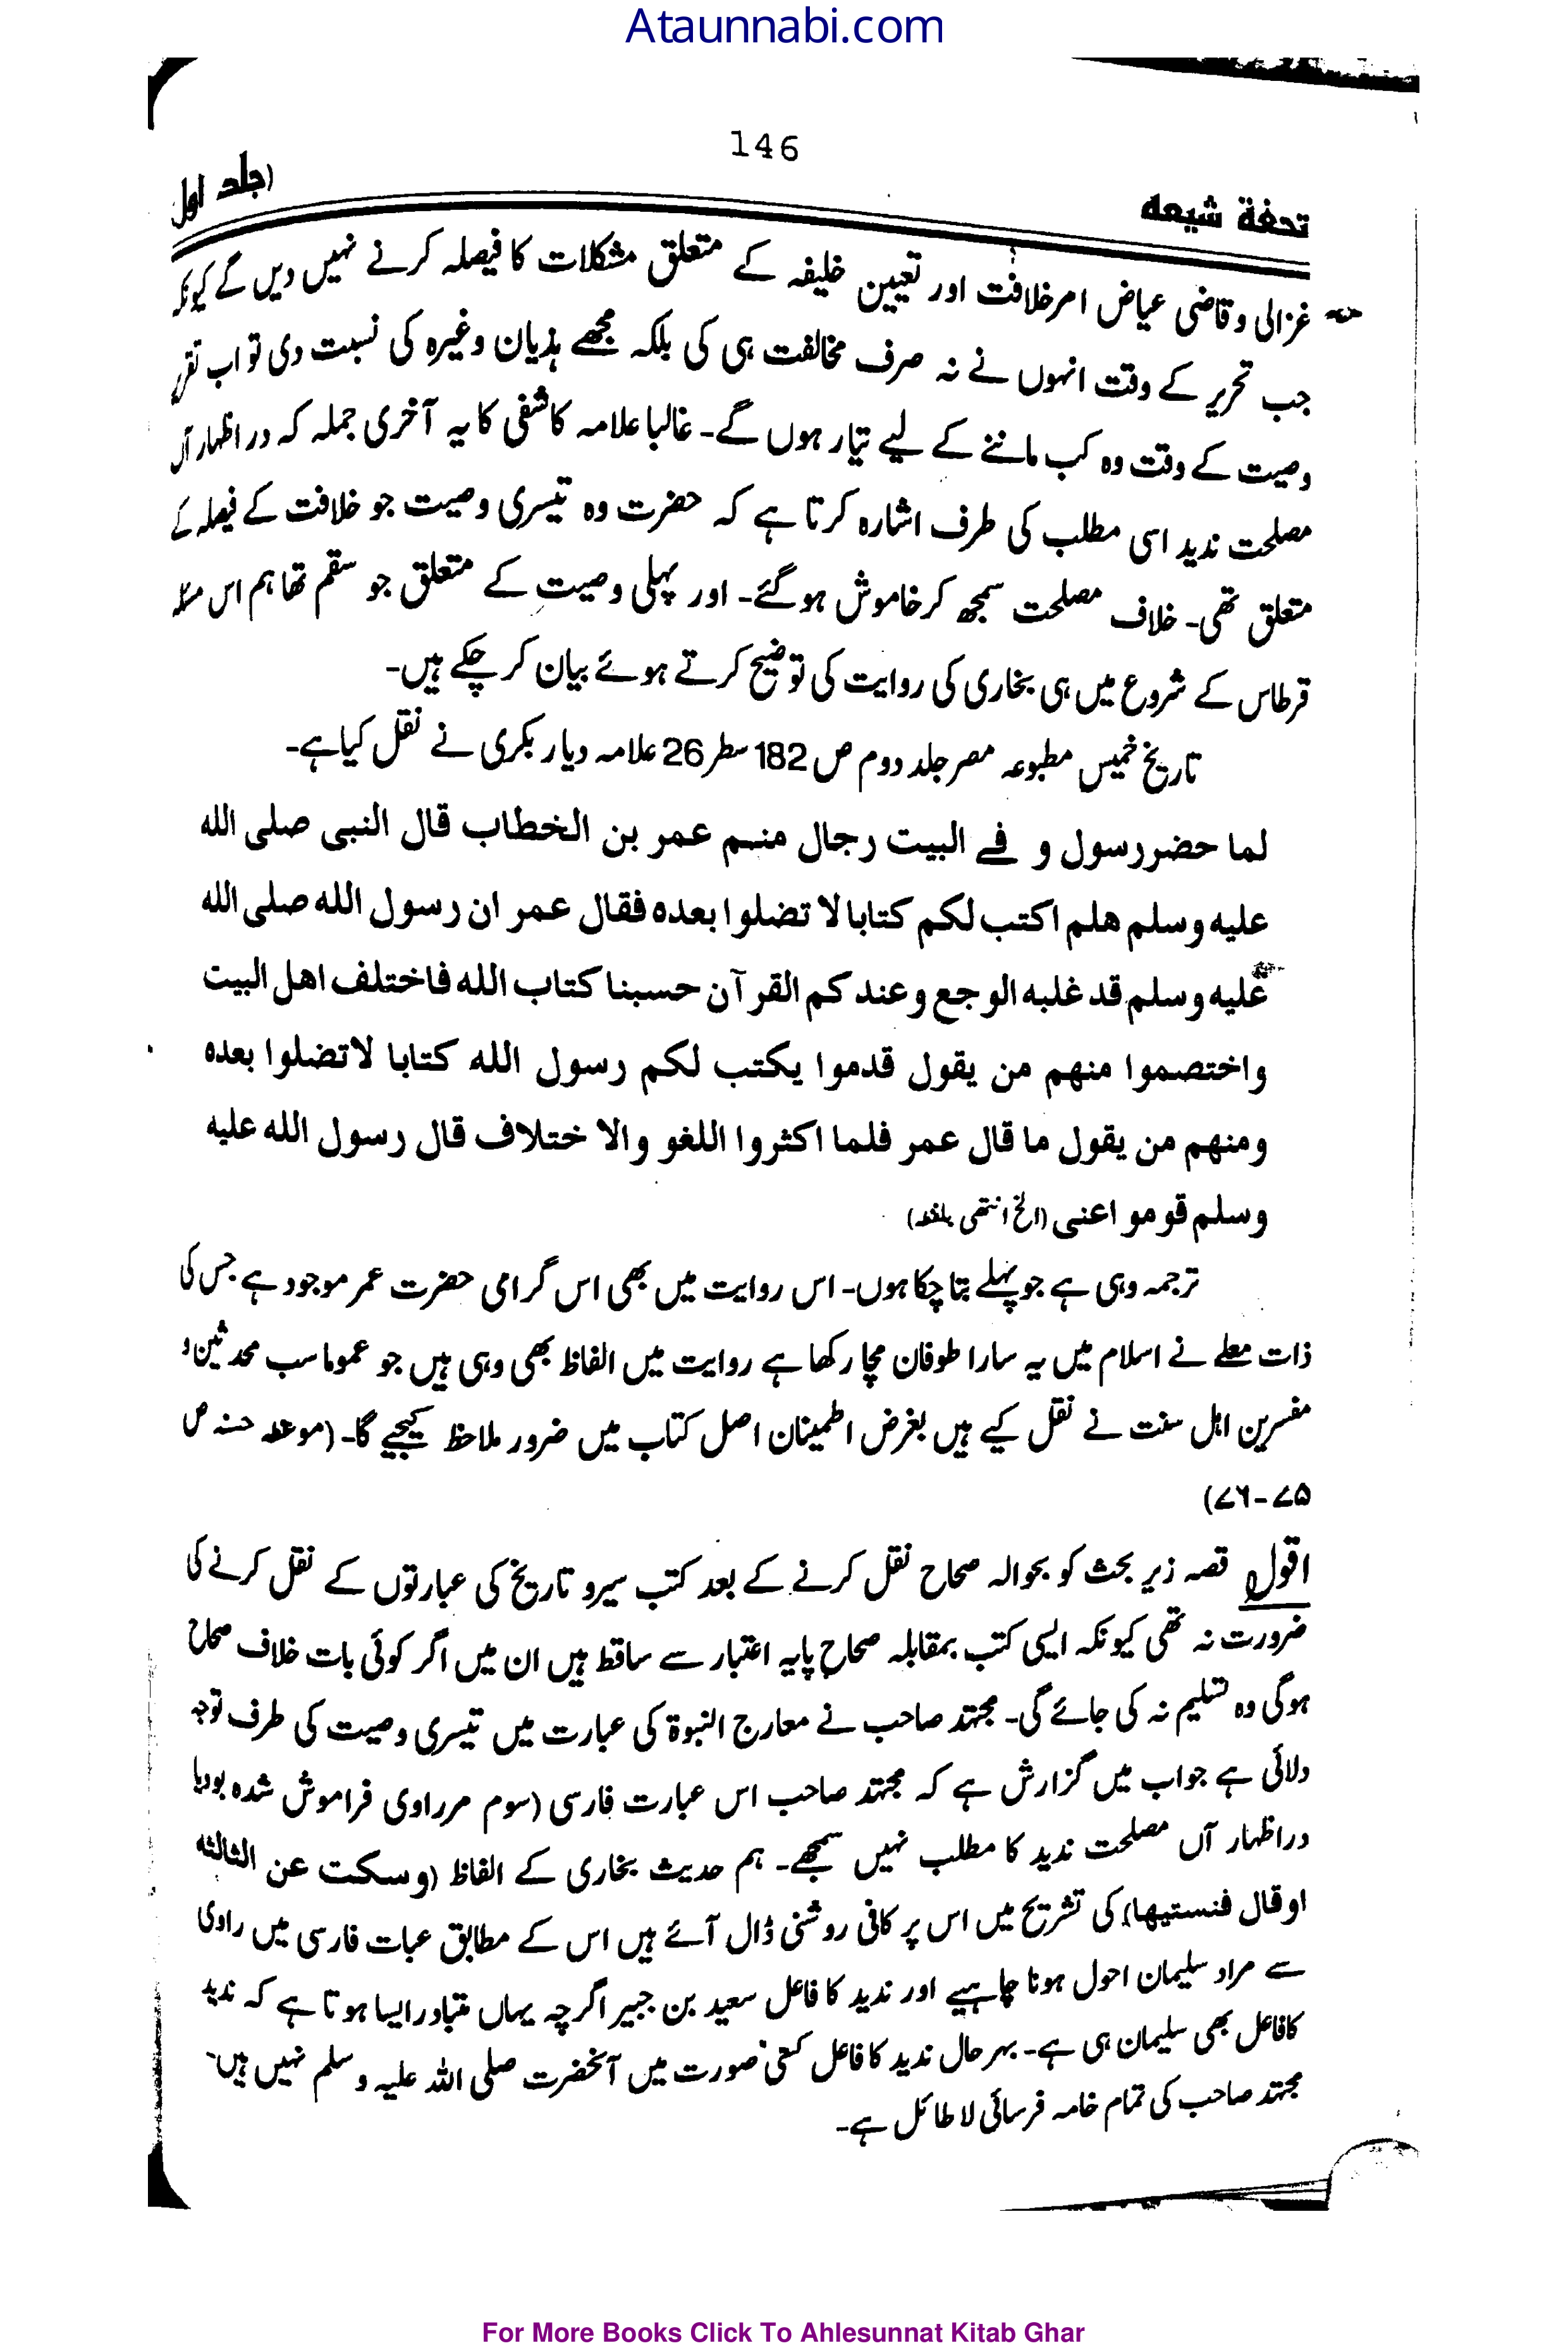 Ataunnabi.com
146
تحفة شیعه
(جلد اول
غزالی و قاضی عیاض امر خلافت اور تعیین خلیفہ کے متعلق مشکلات کا فیصلہ کرنے نہیں دیں گے کیونکہ
جب تحریر کے وقت انہوں نے نہ صرف مخالفت ہی کی بلکہ مجھے ہذیان وغیرہ کی نسبت دی تو اب
وصیت کے وقت وہ کب ماننے کے لیے تیار ہوں گے۔ غالبا علامہ کاشفی کا یہ آخری جملہ کہ در اظہار آں
مصلحت ندید اسی مطلب کی طرف اشارہ کرتا ہے کہ حضرت وہ تیسری وصیت جو خلافت کے فیصلہ کے
متعلق تھی۔ خلاف مصلحت سمجھ کر خاموش ہو گئے۔ اور پہلی وصیت کے متعلق جو سقم تھا ہم اس مسئلہ
قرطاس کے شروع میں ہی بخاری کی روایت کی توضیح کرتے ہوئے بیان کر چکے ہیں۔
تاریخ خمیس مطبوعہ مصر جلد دوم ص 182 سطر 26 علامہ دیار بکری نے نقل کیا ہے۔
لما حضر رسول و فے البیت رجال منہم عمر بن الخطاب قال النبی صلی الله
علیه وسلم هلم اکتب لکم کتابا لا تضلوا بعده فقال عمر ان رسول الله صلی الله
علیه وسلم قد غلبه الوجع وعندکم القرآن حسبنا کتاب الله فاختلف اهل البیت
واختصموا منهم من یقول قدموا یکتب لکم رسول الله کتابا لا تضلوا بعده
ومنهم من یقول ما قال عمر فلما اکثروا اللغو والا ختلاف قال رسول الله علیه
وسلم قو مو اعنی (الخ انتھی بلفظہ)
ترجمہ وہی ہے جو پہلے بتا چکا ہوں۔ اس روایت میں بھی اس گرامی حضرت عمر موجود ہے جس کی
ذات معلے نے اسلام میں یہ سارا طوفان مچا رکھا ہے روایت میں الفاظ بھی وہی ہیں جو عموما سب محدثین و
مفسرین اہل سنت نے نقل کیے ہیں بغرض اطمینان اصل کتاب میں ضرور ملاحظ کیجیے گا۔ (موعظہ حسنہ ص
۷۵-۷۶)
اقول قصہ زیر بحث کو بحوالہ صحاح نقل کرنے کے بعد کتب سیر و تاریخ کی عبارتوں کے نقل کرنے کی
ضرورت نہ تھی کیونکہ ایسی کتب بمقابلہ صحاح پایہ اعتبار سے ساقط ہیں ان میں اگر کوئی بات خلاف صحاح
ہوگی وہ تسلیم نہ کی جائے گی۔ مجتہد صاحب نے معارج النبوۃ کی عبارت میں تیسری وصیت کی طرف توجہ
دلائی ہے جواب میں گزارش ہے کہ مجتہد صاحب اس عبارت فارسی (سوم مرراوی فراموش شدہ بودیا
در اظہار آں مصلحت ندید کا مطلب نہیں سمجھے۔ ہم حدیث بخاری کے الفاظ (وسکت عن الثالثه
اوقال فنسیتها) کی تشریح میں اس پر کافی روشنی ڈال آئے ہیں اس کے مطابق عبات فارسی میں راوی
سے مراد سلیمان احول ہونا چاہیے اور ندید کا فاعل سعید بن جبیر اگرچہ یہاں متبادر ایسا ہوتا ہے کہ ندید
کا فاعل بھی سلیمان ہی ہے۔ بہر حال ندید کا فاعل کسی صورت میں آنحضرت صلی اللہ علیہ وسلم نہیں ہیں۔
مجتہد صاحب کی تمام خامہ فرسائی لا طائل ہے۔
For More Books Click To Ahlesunnat Kitab Ghar